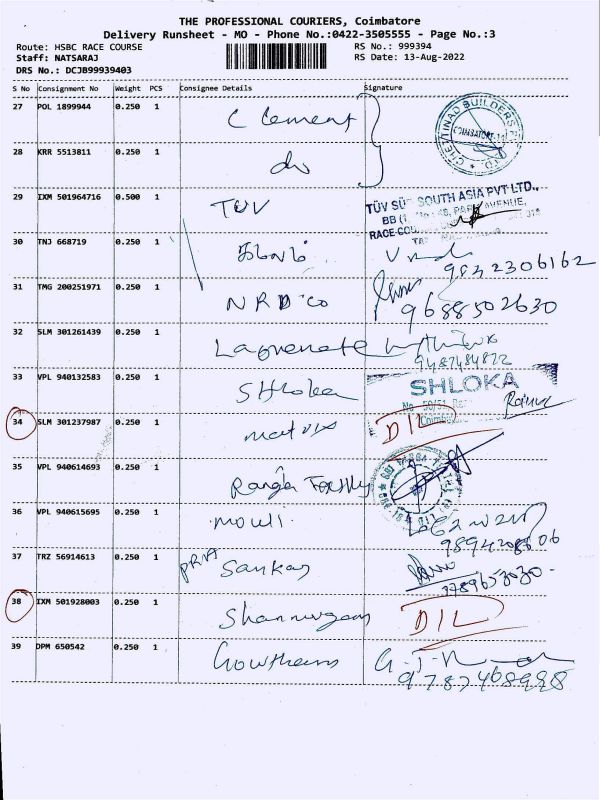 THE PROFESSIONAL COURIERS, Coimbatore
Delivery Runsheet - MO - Phone No.:0422-3505555 - Page No.:3
Route: HSBC RACE COURSE
RS No.: 999394
Staff: NATSARAJ
RS Date: 13-Aug-2022
DRS No.: DCJB99939403
S No Consignment No Weight PCS Consignee Details Signature
27 POL 1899944 0.250 1 C Cement
CHETTINAD BUILDERS LTD. COIMBATORE
28 KRR 5513811 0.250 1 do
29 IXM 501964716 0.500 1 TUV
TÜV SÜD SOUTH ASIA PVT LTD.,
AVENUE,
RACE COU
30 TNJ 668719 0.250 1
9842306162
31 TMG 200251971 0.250 1 NRD Co
9688502630
32 SLM 301261439 0.250 1
9487484872
33 VPL 940132583 0.250 1 Shloka
SHLOKA
Coimbatore
34 SLM 301237987 0.250 1 matrix D/L
35 VPL 940614693 0.250 1 Ranga
36 VPL 940615695 0.250 1 mouli
37 TRZ 56914613 0.250 1 PRA Sankar
38 IXM 501928003 0.250 1 Shanmugam D/L
39 DPM 650542 0.250 1 Gowtham
9787468998